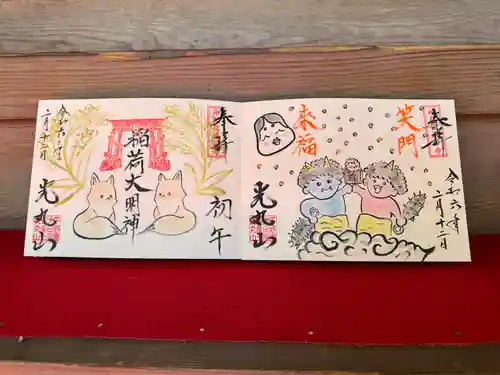 奉拝
笑門
来福
光丸山
令和六年
二月十二日
奉拝
初午
稲荷大明神
光丸山
令和六年
二月十二日